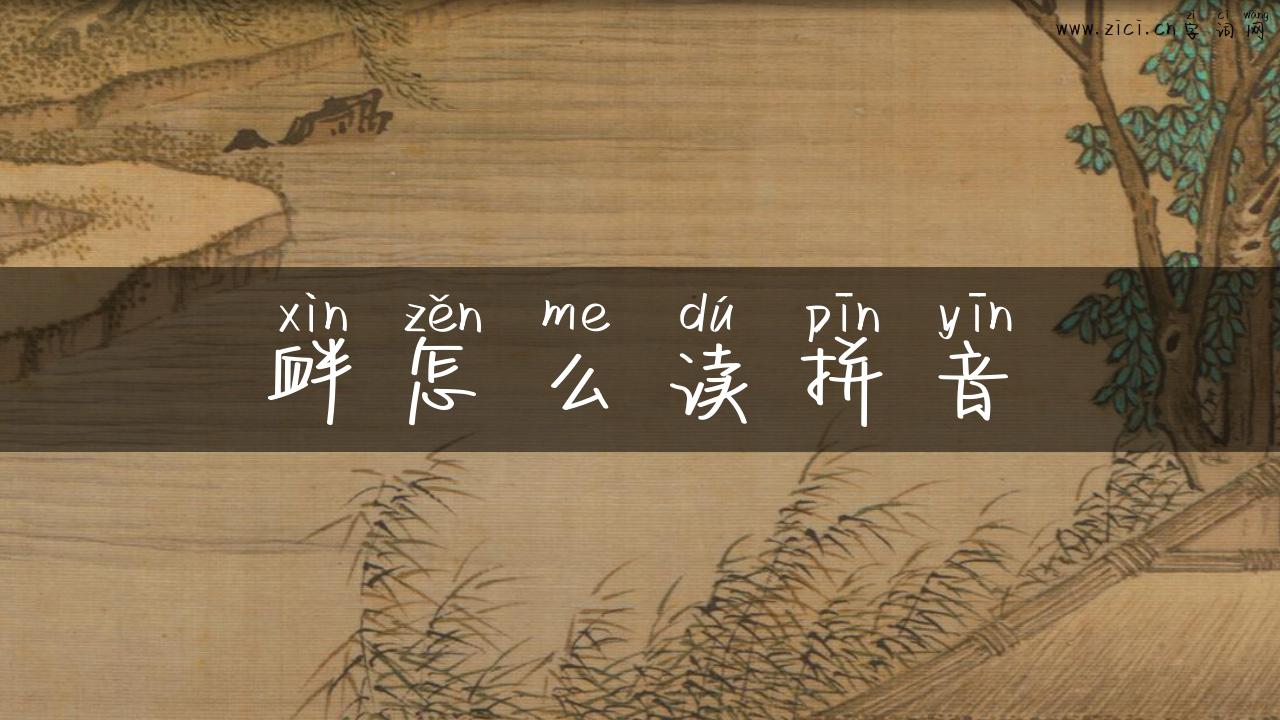 zì cí wǎng
www.zici.cn 字 词 网
xìn zěn me dú pīn yīn
衅 怎 么 读 拼 音